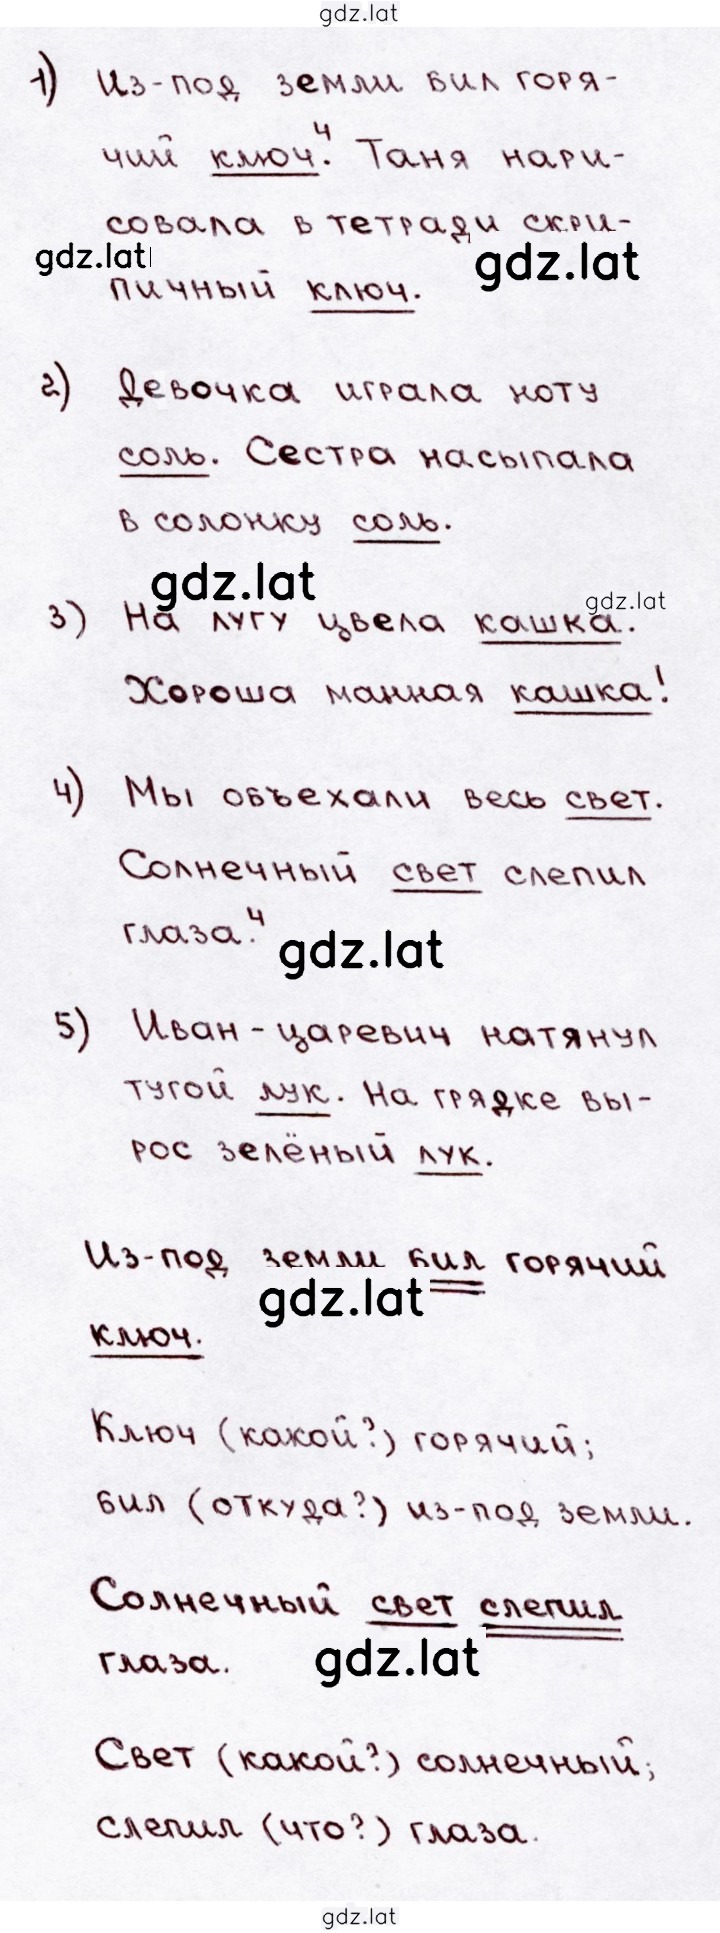 gdz.lat
1) Из-под земли бил горя-
чий ключ.⁴ Таня нари-
совала в тетради скри-
gdz.lat gdz.lat
пичный ключ.
2) Девочка играла ноту
соль. Сестра насыпала
в солонку соль.
gdz.lat
gdz.lat
3) На лугу цвела кашка.
Хороша манная кашка!
4) Мы объехали весь свет.
Солнечный свет слепил
глаза.⁴
gdz.lat
5) Иван-царевич натянул
тугой лук. На грядке вы-
рос зелёный лук.
Из-под земли бил горячий
gdz.lat
ключ.
Ключ (какой?) горячий;
бил (откуда?) из-под земли.
Солнечный свет слепил
глаза.
gdz.lat
Свет (какой?) солнечный;
слепил (что?) глаза.
gdz.lat